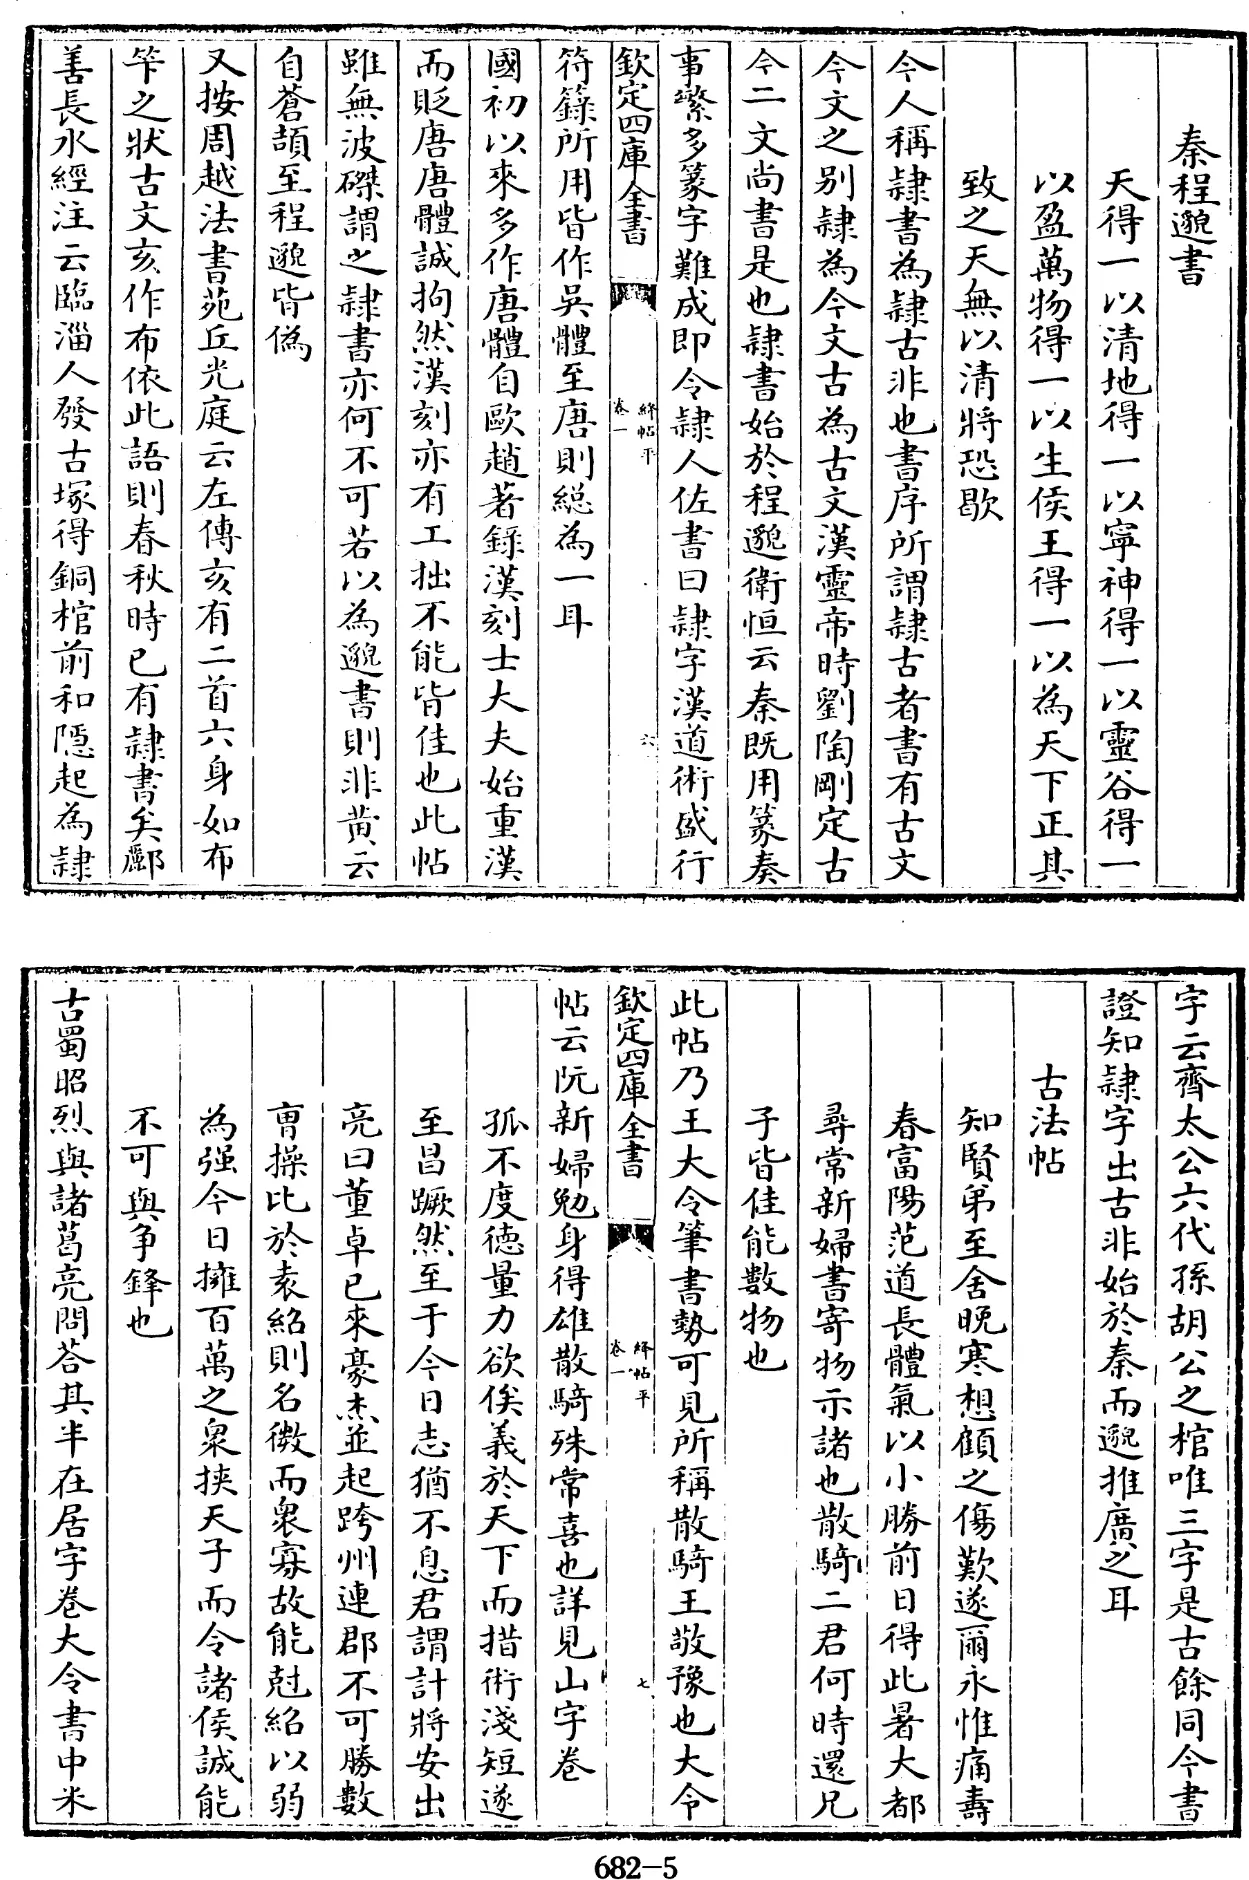 秦程邈書
天得一以清地得一以寧神得一以靈谷得一
以盈萬物得一以生侯王得一以為天下正其
致之天無以清將恐歇
今人稱隸書為隸古非也書序所謂隸古者書有古文
今文之别隸為今文古為古文漢靈帝時劉陶剛定古
今二文尚書是也隸書始於程邈衛恒云秦既用篆奏
事繁多篆字難成即令隸人佐書曰隸字漢道術盛行
欽定四庫全書
絳帖平
卷一
六
符籙所用皆作吳體至唐則總為一耳
國初以來多作唐體自歐趙著錄漢刻士大夫始重漢
而貶唐唐體誠拘然漢刻亦有工拙不能皆佳也此帖
雖無波磔謂之隸書亦何不可若以為邈書則非黃云
自蒼頡至程邈皆偽
又按周越法書苑丘光庭云左傳亥有二首六身如布
筭之狀古文亥作布依此語則春秋時已有隸書矣酈
善長水經注云臨淄人發古塚得銅棺前和隱起為隸
字云齊太公六代孫胡公之棺唯三字是古餘同今書
證知隸字出古非始於秦而邈推廣之耳
古法帖
知賢弟至舍晚寒想顧之傷歎遂爾永惟痛壽
春富陽范道長體氣以小勝前日得此暑大都
尋常新婦書寄物示諸也散騎二君何時還兄
子皆佳能數物也
此帖乃王大令筆書勢可見所稱散騎王敬豫也大令
欽定四庫全書
絳帖平
卷一
七
帖云阮新婦勉身得雄散騎殊常喜也詳見山字卷
孤不度德量力欲俟義於天下而措術淺短遂
至昌蹶然至于今日志猶不息君謂計將安出
亮曰董卓已來豪杰並起跨州連郡不可勝數
曹操比於袁紹則名微而衆寡故能尅紹以弱
為强今日擁百萬之衆挾天子而令諸侯誠能
不可與争鋒也
古蜀昭烈與諸葛亮問荅其半在居字卷大令書中米
682-5